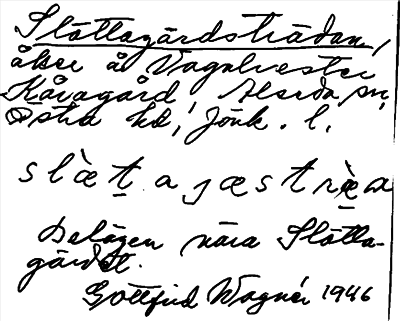 Slättagärdsträdan,
åker å Vagnhester
Kåvagård, Alseda sn,
Östra hd, Jönk. l.
slæ̀t̠aɟæstræ̀a
Belägen nära Slätta-
gärdet.
Gottfrid Wagnér 1946